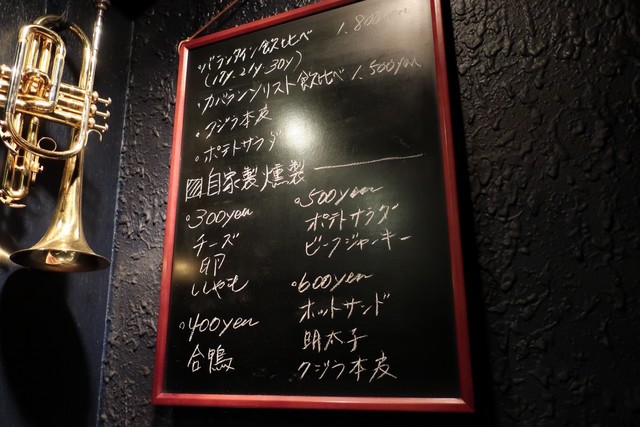 •バランタイン飲比べ 1.800yen
(17y・21y・30y)
•カバランソリスト飲比べ 1.500yen
•クジラ本皮
•ポテトサラダ
自家製燻製
•300yen
チーズ
卵
ししゃも
•400yen
合鴨
•500yen
ポテトサラダ
ビーフジャーキー
•600yen
ホットサンド
明太子
クジラ本皮